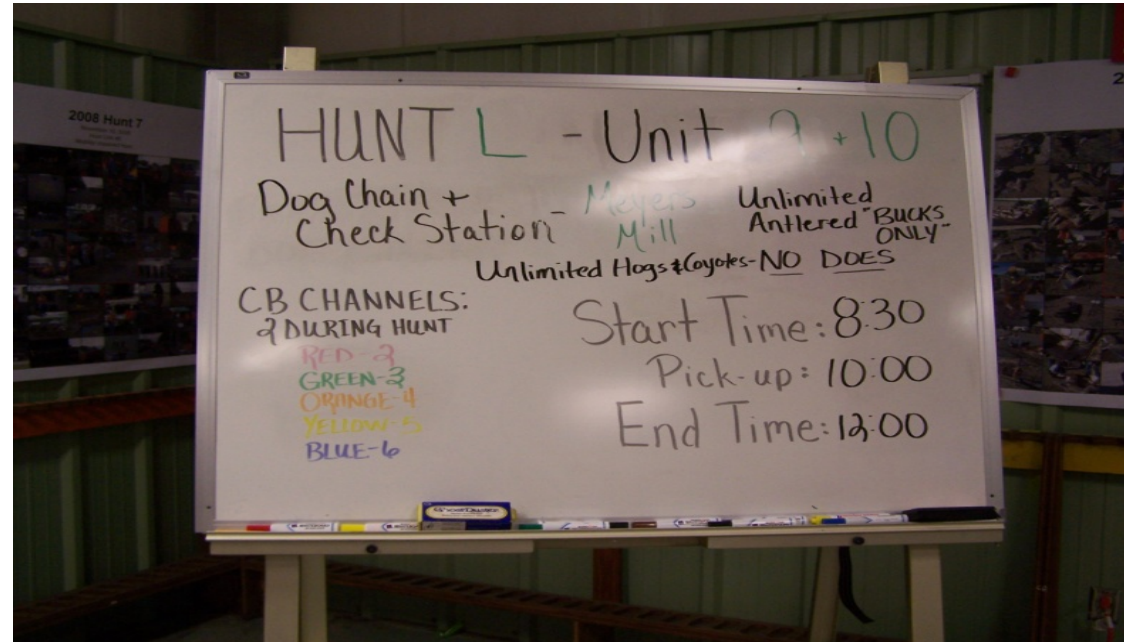 HUNT L - Unit 9 + 10
Dog Chain +
Check Station -
Meyers
Mill
Unlimited
Antlered "BUCKS
ONLY"
Unlimited Hogs & Coyotes - NO DOES
CB CHANNELS:
2 DURING HUNT
RED - 2
GREEN - 3
ORANGE - 4
YELLOW - 5
BLUE - 6
Start Time: 8:30
Pick-up: 10:00
End Time: 12:00
2008 Hunt 7
2